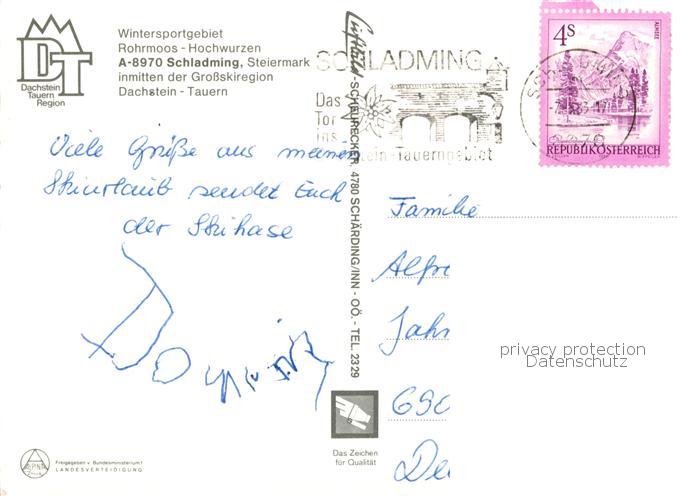 Wintersportgebiet
Rohrmoos - Hochwurzen
A-8970 Schladming, Steiermark
inmitten der Großskiregion
Dachstein - Tauern
DT
Dachstein
Tauern
Region
Viele Grüße aus meinem
Skiurlaub sendet Euch
der Skihase
Dominik
Freigegeben v. Bundesministerium f.
LANDESVERTEIDIGUNG
Luftbild SCHEURECKER, 4780 SCHÄRDING/INN - OÖ. - TEL. 2329
Das Zeichen
für Qualität
SCHLADMING
Das
Tor
ins
stein-Tauerngebiet
4S
ALMSEE
REPUBLIK ÖSTERREICH
SCHLADMING
8970
Familie
Alfre
Jahn
690
De
privacy protection
Datenschutz